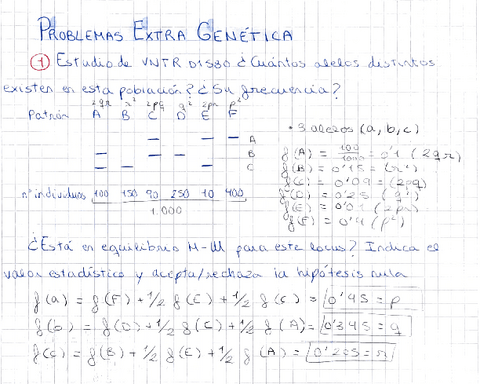 PROBLEMAS EXTRA GENÉTICA
① Estudio de VNTR D1S80 ¿Cuántos alelos distintos
existen en esta población? ¿Su frecuencia?
2qr r² 2pq q² 2pr p²
Patrón A B C D E F
A
B
C
nº individuos 100 150 90 250 10 400
1.000
• 3 alelos (a, b, c)
f(A) = 100/1000 = 0'1 (2qr)
f(B) = 0'15 = (r²)
f(C) = 0'09 = (2pq)
f(D) = 0'25 (q²)
f(E) = 0'01 (2pr)
f(F) = 0'4 (p²)
¿Está en equilibrio H-W para este locus? Indica el
valor estadístico y acepta/rechaza la hipótesis nula
f(a) = f(F) + 1/2 f(C) + 1/2 f(E) = 0'45 = p
f(b) = f(D) + 1/2 f(C) + 1/2 f(A) = 0'345 = q
f(c) = f(B) + 1/2 f(E) + 1/2 f(A) = 0'205 = r